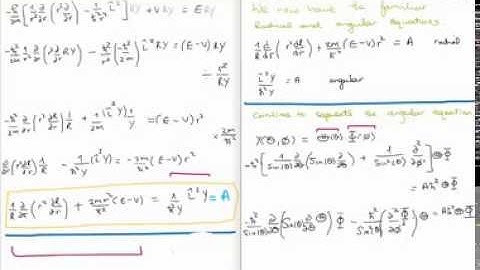 -ħ²/2m [1/r² ∂/∂r (r² ∂/∂r) - 1/ħ²r² L̂²] RY + VRY = ERY
-ħ²/2m 1/r² ∂/∂r (r² ∂/∂r) RY - ħ²/2m (-1/ħ²r²) L̂² RY = (E-V) RY
-ħ²/2m ∂/∂r (r² ∂R/∂r) 1/R + 1/2m (L̂² Y) 1/Y = (E-V) r²
∂/∂r (r² dR/dr) 1/R - 1/ħ² (L̂² Y) 1/Y = -2m/ħ² (E-V) r²
1/R ∂/∂r (r² dR/dr) + 2mr²/ħ² (E-V) = 1/ħ²Y L̂² Y = A
We now have the familiar
Radial and angular equations
1/R d/dr (r² dR/dr) + 2m/ħ² (E-V) r² = A radial
L̂² Y/ħ² Y = A angular
Continue to separate the angular equation
Y(Θ,ϕ) = Θ(Θ) Φ(ϕ)
-ħ² [1/Sin(Θ) ∂/∂Θ (Sin(Θ) ∂/∂Θ) + 1/Sin²(Θ) ∂²/∂ϕ²] ΘΦ
= Aħ² ΘΦ
-ħ²/Sin(Θ) ∂/∂Θ (Sin(Θ) ∂Θ/∂Θ) Φ - ħ²/Sin²(Θ) (∂²Φ/∂ϕ²) Θ = Aħ² ΘΦ